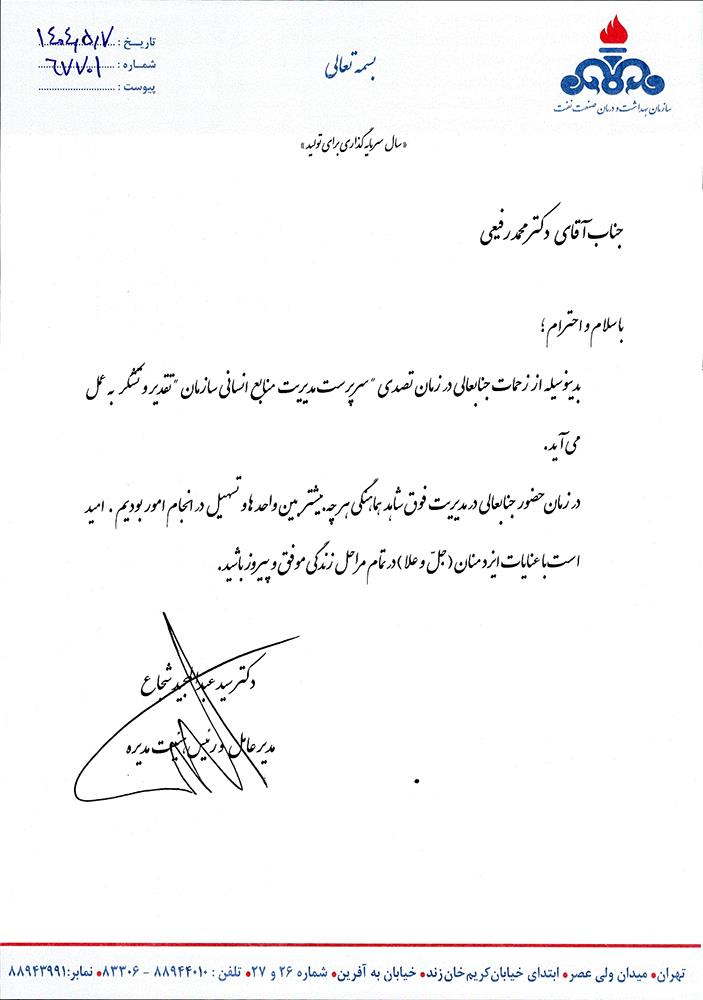 تاریـخ : ۱۴۰۴،۵،۷
شماره : ۶۷۷۰۱
پیوست :
بسمه تعالی
سازمان بهداشت و درمان صنعت نفت
«سال سرمایه گذاری برای تولید»
جناب آقای دکتر محمد رفیعی
با سلام و احترام ؛
بدینوسیله از زحمات جنابعالی در زمان تصدی "سرپرست مدیریت منابع انسانی سازمان" تقدیر و تشکر به عمل
می آید.
در زمان حضور جنابعالی در مدیریت فوق شاهد هماهنگی هر چه بیشتر بین واحد ها و تسهیل در انجام امور بودیم . امید
است با عنایات ایزد منان (جلّ و علا) در تمام مراحل زندگی موفق و پیروز باشید.
دکتر سید عبدالمجید شجاع
مدیر عامل و رئیس هیئت مدیره
تهران • میدان ولی عصر • ابتدای خیابان کریم خان زند • خیابان به آفرین • شماره ۲۶ و ۲۷ • تلفن : ۸۸۹۴۴۰۱۰ - ۸۳۳۰۶ • نمابر: ۸۸۹۴۳۹۹۱